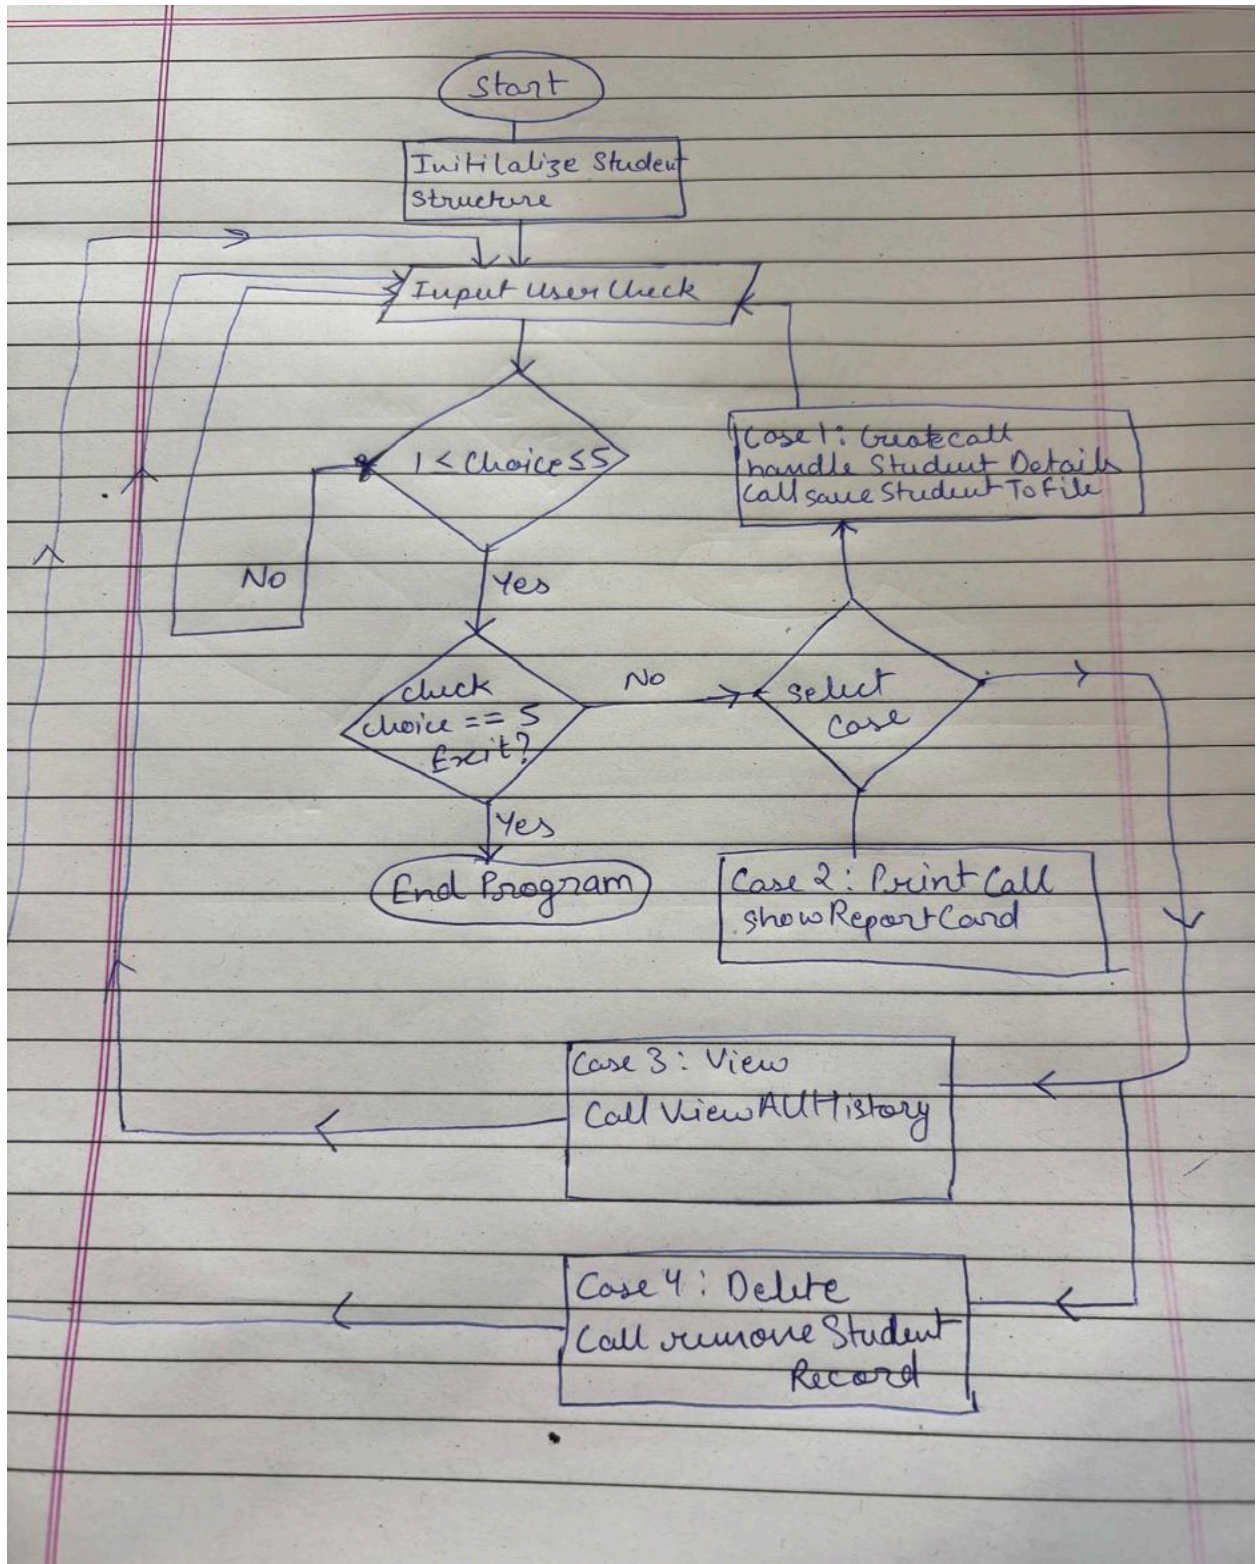 Start
Initilalize Student
Structure
Input User Check
1 < Choice ≤ 5
No
Yes
Case 1: Create call
handle Student Details
Call save Student To File
check
choice == 5
Exit?
No
select
case
Yes
End Program
Case 2: Print Call
showReportCard
Case 3: View
Call ViewAllHistory
Case 4: Delete
Call remove Student
Record